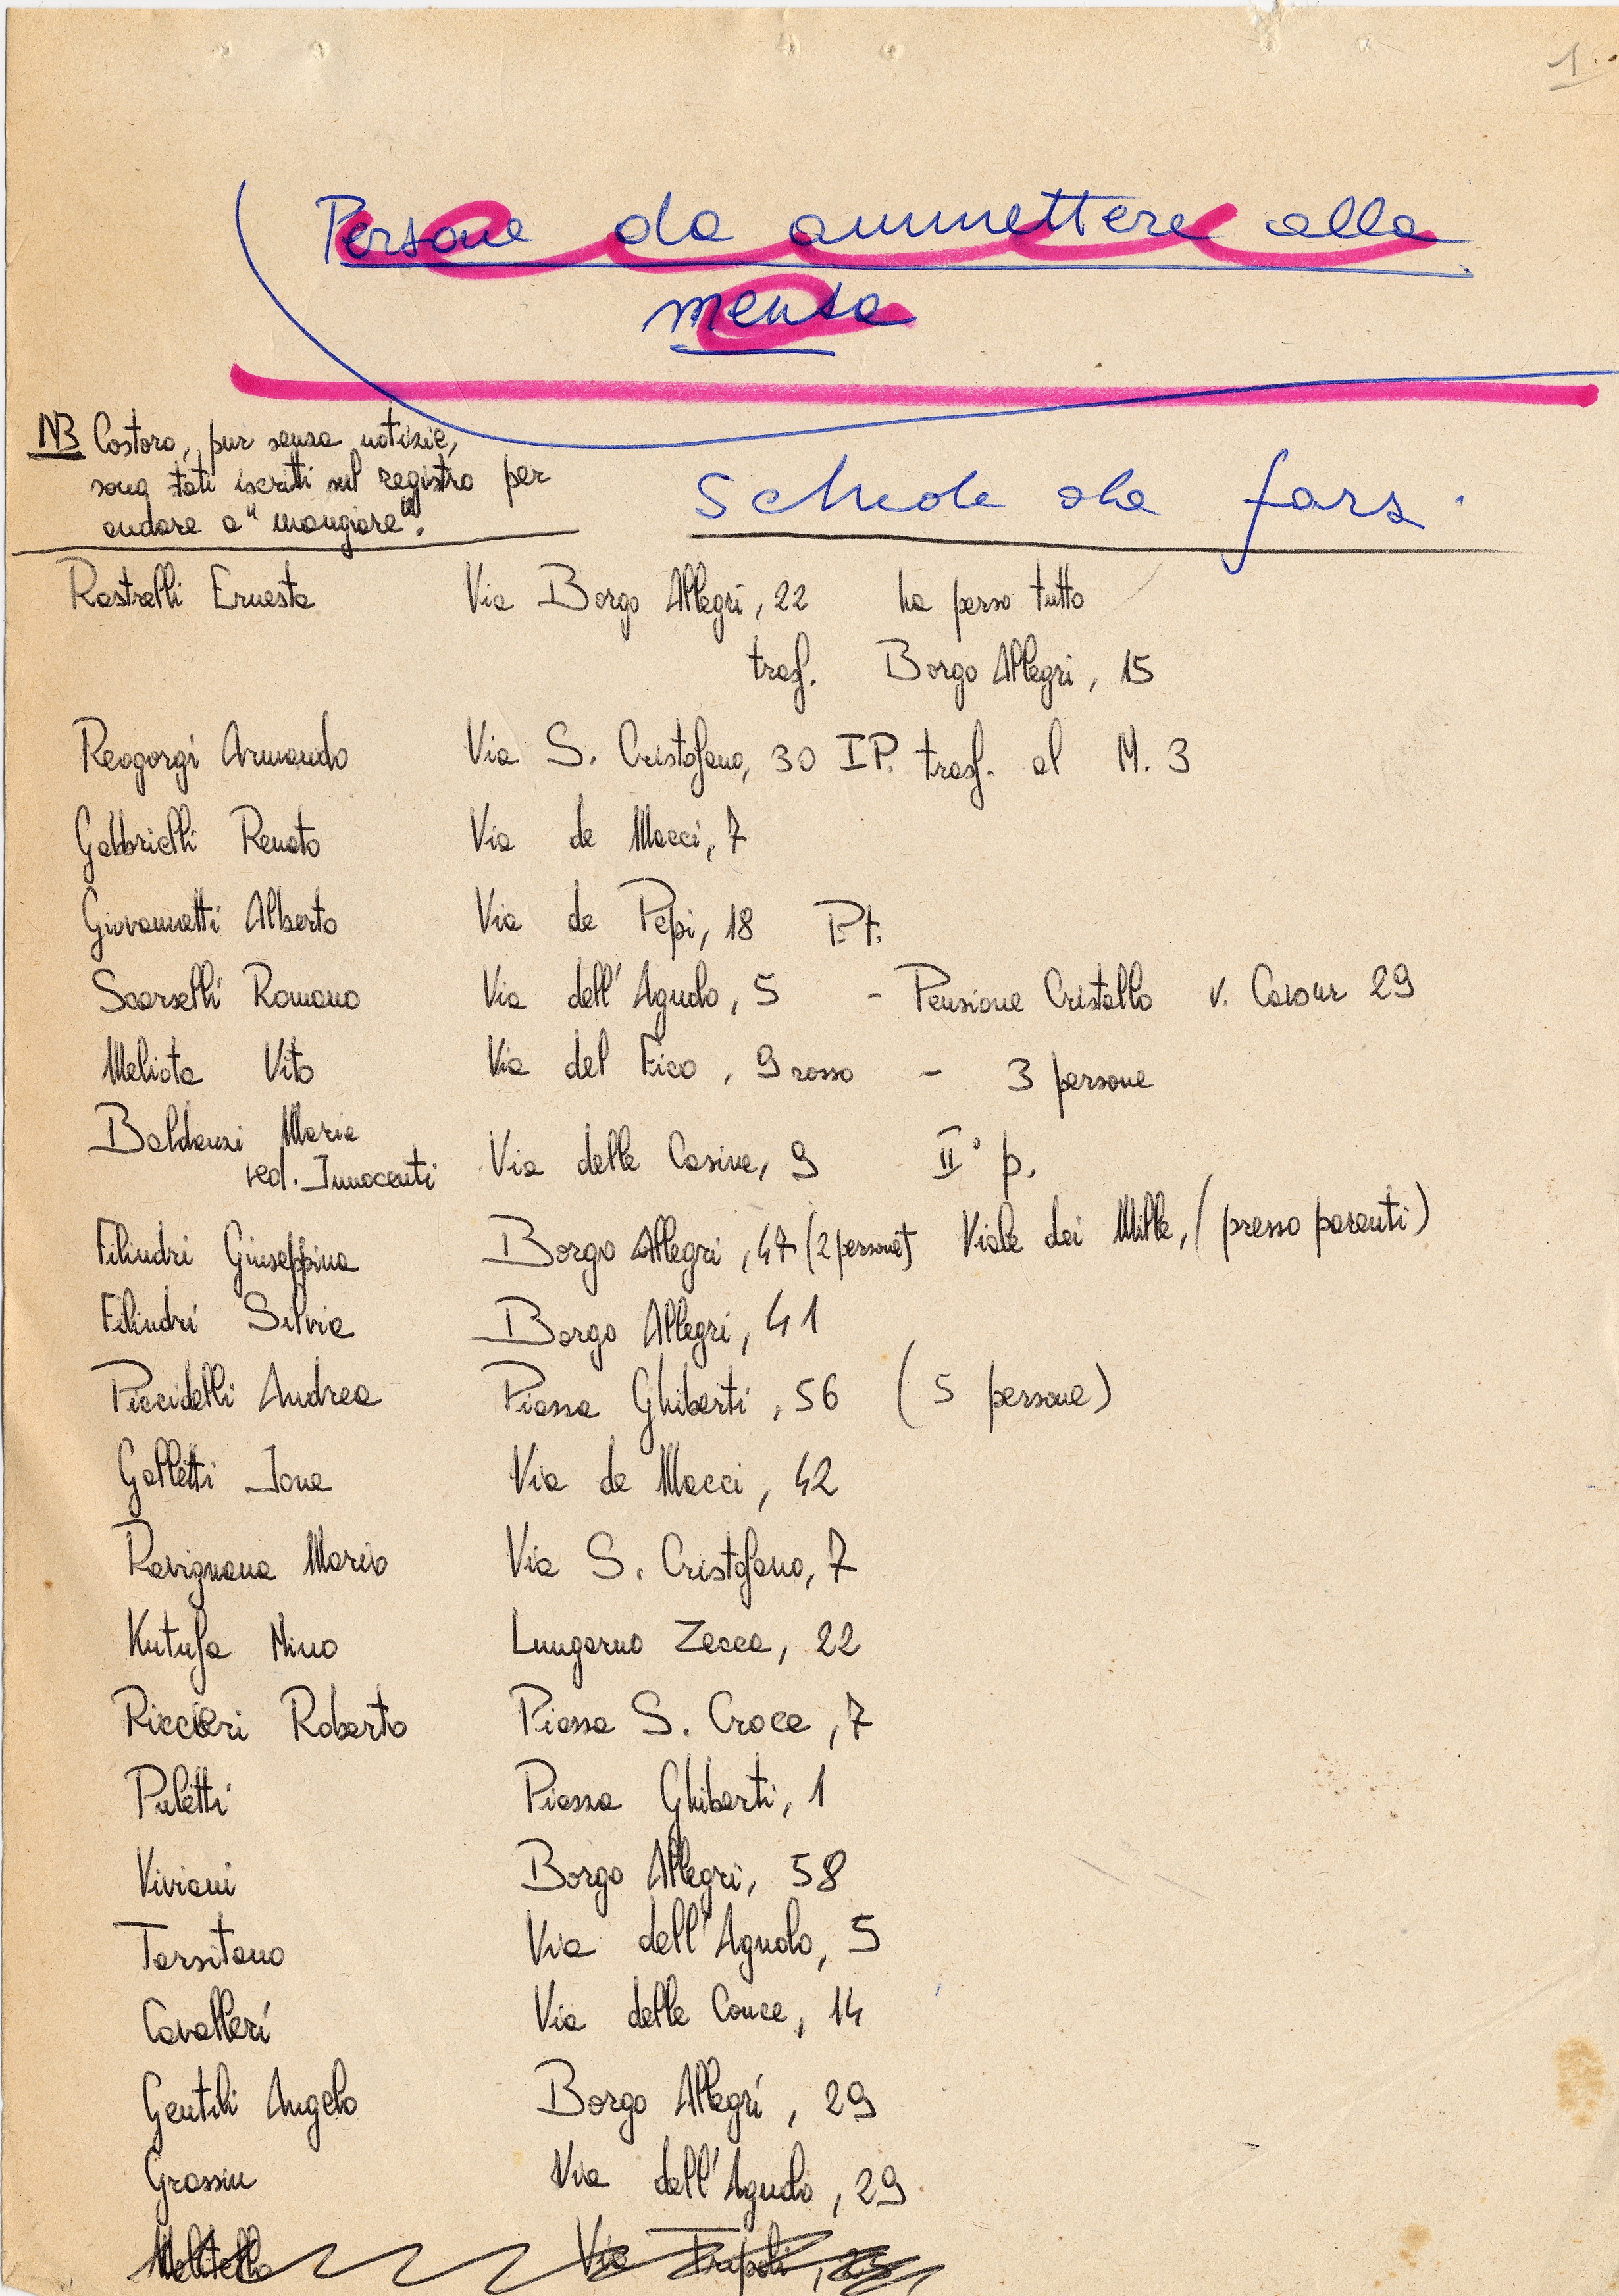 1.
Persone da ammettere alla
mensa
NB Costoro, pur senza notizie,
sono stati iscritti sul registro per
andare a "mangiare".
Schede da fare
Rastrelli Ernesta Via Borgo Allegri, 22 ha perso tutto
trasf. Borgo Allegri, 15
Reogorgi Armando Via S. Cristofano, 30 I P. trasf. al M. 3
Gabbrielli Renato Via de Macci, 7
Giovannetti Alberto Via de Pepi, 18 P.t.
Scarselli Romano Via dell'Agnolo, 5 - Pensione Cristallo v. Cavour 29
Meliota Vito Via del Fico, 9 rosso - 3 persone
Baldanzi Maria
ved. Innocenti Via delle Casine, 9 II° p.
Filindri Giuseppina Borgo Allegri, 47 (2 persone) Viale dei Mille, (presso parenti)
Filindri Silvia Borgo Allegri, 41
Piccidelli Andrea Piazza Ghiberti, 56 (5 persone)
Galletti Ione Via de Macci, 42
Ravignana Mario Via S. Cristofano, 7
Kutufa Nino Lungarno Zecca, 22
Riccieri Roberto Piazza S. Croce, 7
Puletti Piazza Ghiberti, 1
Viviani Borgo Allegri, 58
Tarsitano Via dell'Agnolo, 5
Cavalleri Via delle Conce, 14
Gentili Angelo Borgo Allegri, 29
Grassin Via dell'Agnolo, 29
Via Tripoli,